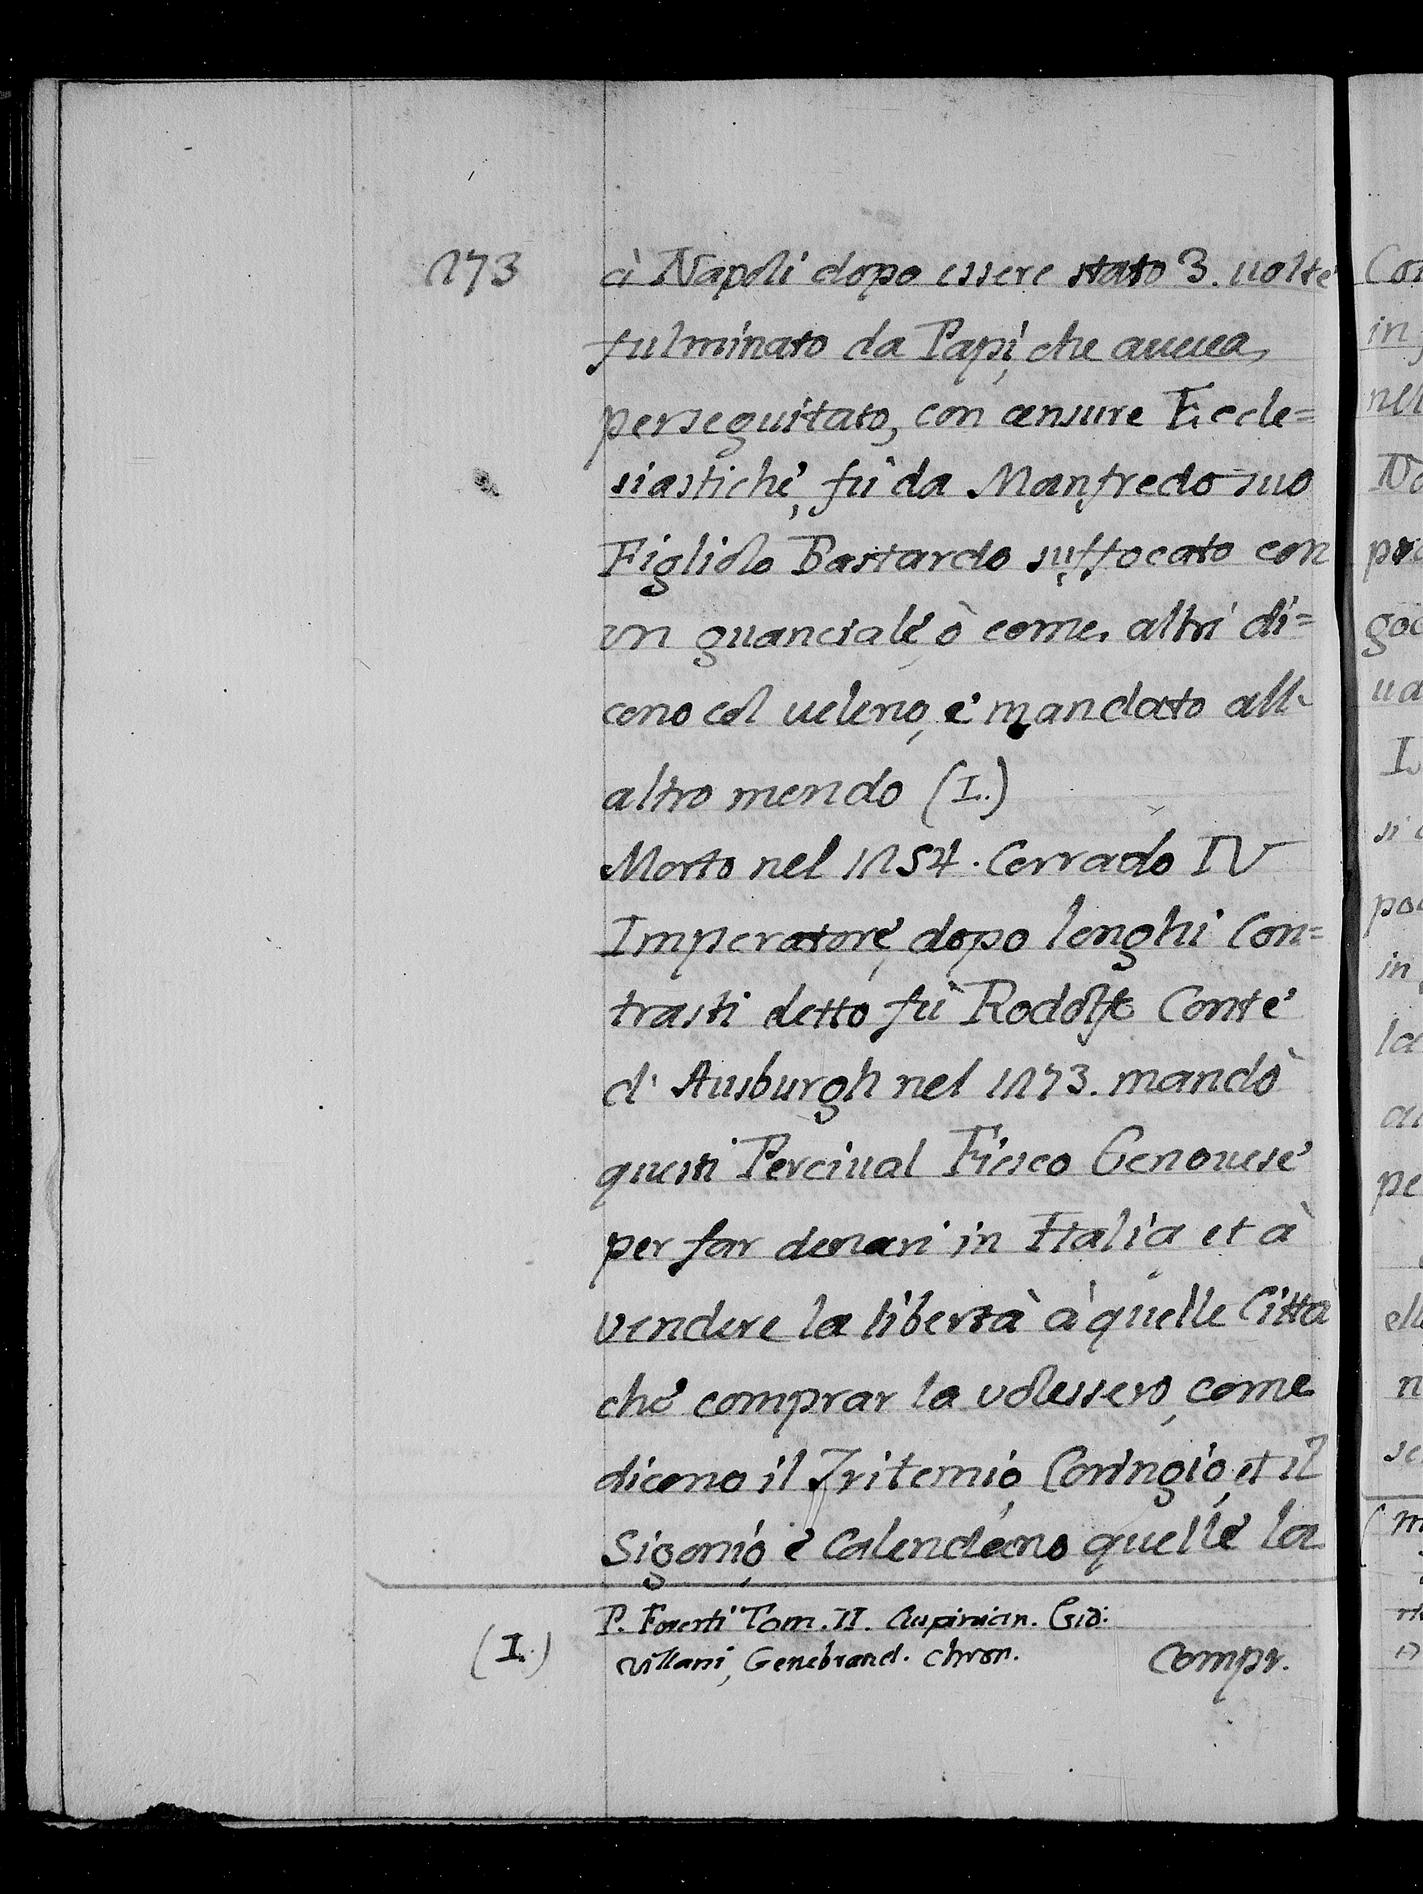 1273
à Napoli dopo essere stato 3. uolte
fulminato da Papi, che aueua
perseguitato, con censure Eccle=
siastiche, fù da Manfredo suo
Figliolo Bastardo suffocato con
un guanciale, ò come altri di=
cono col ueleno, e mandato all'
altro mondo (I.)
Morto nel 1254. Corrado IV
Imperatore, dopo longhi Con=
trasti detto fù Rodolfo Conte
d' Ausburgh nel 1273. mandò
questi Perciual Fiesco Genouese
per far denari in Italia et à
vendere la libertà à quelle Città
che comprar la volessero, come
dicono il Tritemio, Coringio, et il
Sigonio, e Calendeno quelle la
(I.)
P. Foresti Tom. II. Cuspinian. Gio:
Villani, Genebrand. Chron.
Compr.